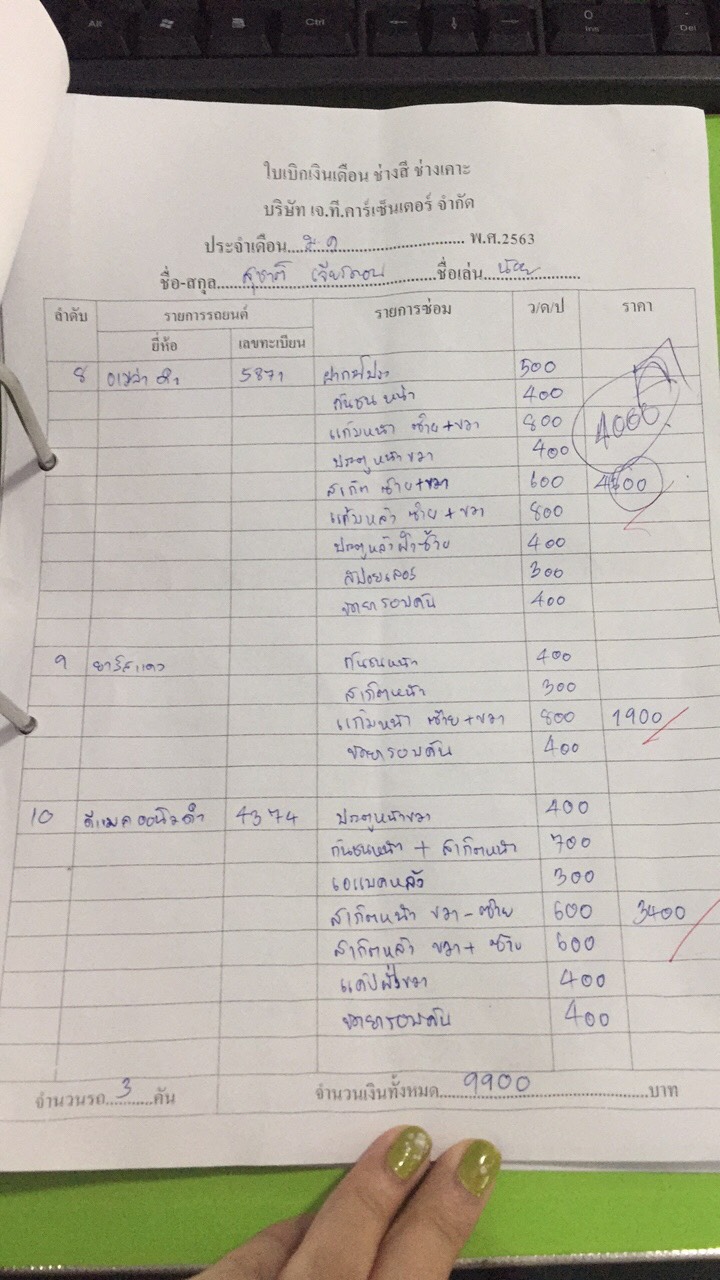 Alt Ctrl Ins Del
ใบเบิกเงินเดือน ช่างสี ช่างเคาะ
บริษัท เจ.ที.คาร์เซ็นเตอร์ จำกัด
ประจำเดือน...............พ.ศ.2563
ชื่อ-สกุล...สุชาติ...............ชื่อเล่น...น้อย...............
ลำดับ รายการรถยนต์ รายการซ่อม ว/ด/ป ราคา
ยี่ห้อ เลขทะเบียน
8 ดำ 5871 ฝากระโปรง 500
กันชนหน้า 400
แก้มหน้า ซ้าย+ขวา 800 4000
ประตูหน้าขวา 400
สเกิต ซ้าย+ขวา 600 4600
แก้มหลัง ซ้าย+ขวา 800
ประตูหลังฝั่งซ้าย 400
สปอยเลอร์ 300
ขัดยารอบคัน 400
9 ยาริสแดง กันชนหน้า 400
สเกิตหน้า 300
แก้มหน้า ซ้าย+ขวา 800 1900
ขัดยารอบคัน 400
10 ดีแมคออนิวดำ 4374 ประตูหน้าขวา 400
กันชนหน้า + สเกิตหน้า 700
300
สเกิตหน้า ขวา-ซ้าย 600 3400
สเกิตหลัง ขวา+ซ้าย 600
แค๊ปฝั่งขวา 400
ขัดยารอบคัน 400
จำนวนรถ...3...คัน จำนวนเงินทั้งหมด...9900...............บาท